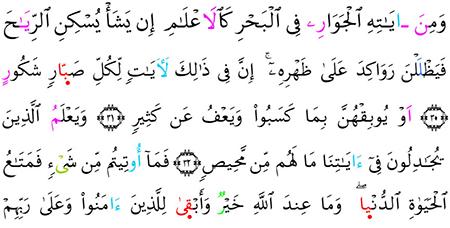 وَمِنَ ـ‍ايَٰتِهِ الْجَوَارِۦ فِى الْبَحْرِ كَالَاعْلَٰمِ إِن يَشَأْ يُسْكِنِ الرِّيَٰحَ
فَيَظْلَلْنَ رَوَاكِدَ عَلَىٰ ظَهْرِهِۦٓۚ إِنَّ فِى ذَٰلِكَ لَأَيَٰتٍ لِّكُلِّ صَبّ۪ارٍ شَكُورٍ
﴿٣٠﴾ اَوْ يُوبِقْهُنَّ بِمَا كَسَبُواْ وَيَعْفُ عَن كَثِيرٍ ﴿٣١﴾ وَيَعْلَمُ الَّذِينَ
يُجَٰدِلُونَ فِىٓ ءَايَٰتِنَا مَا لَهُم مِّن مَّحِيصٍ ﴿٣٢﴾ فَمَآ أُوتِيتُم مِّن شَىْءٍ فَمَتَٰعُ
الْحَيَوٰةِ الدُّنْي۪اۖ وَمَا عِندَ اللَّهِ خَيْرٌ وَأَبْق۪ىٰ لِلَّذِينَ ءَامَنُواْ وَعَلَىٰ رَبِّهِمْ